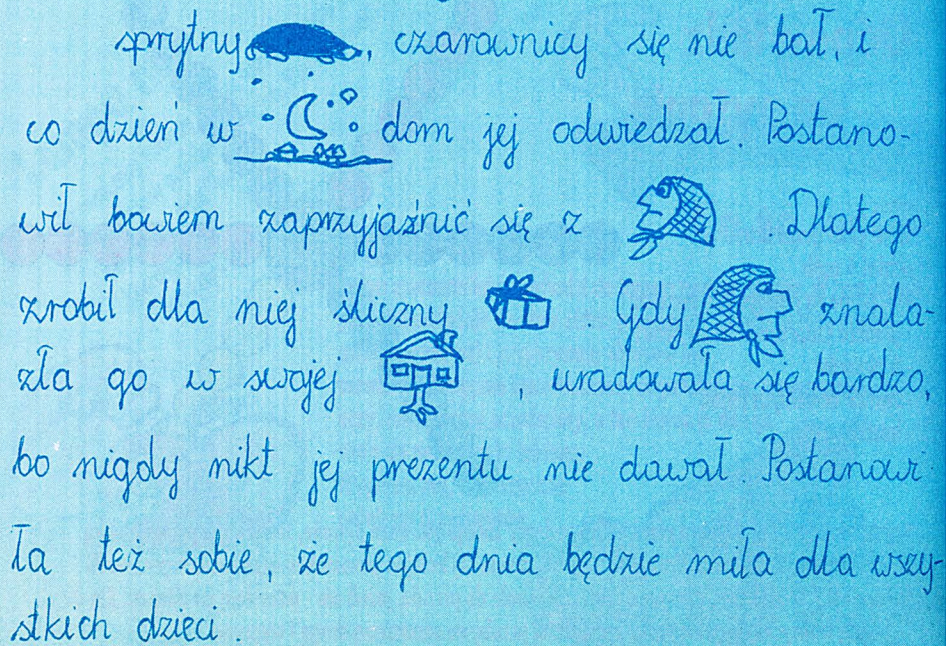 sprytny , czarownicy się nie bał, i
co dzień w dom jej odwiedzał. Postano-
wił bowiem zaprzyjaźnić się z . Dlatego
zrobił dla niej śliczny . Gdy znala-
zła go w swojej , uradowała się bardzo,
bo nigdy nikt jej prezentu nie dawał. Postanowi
ła też sobie, że tego dnia będzie miła dla wszy-
stkich dzieci.